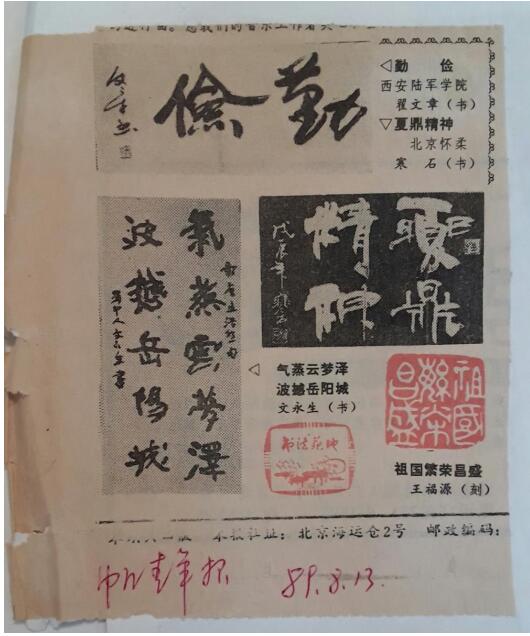 勤儉
◁勤 俭
西安陆军学院
翟文章（书）
▽夏鼎精神
北京怀柔
寒 石（书）
氣蒸雲夢澤
波撼岳陽城
精神
戊辰年寒石
◁ 气蒸云梦泽
波撼岳阳城
文永生（书）
祖國
繁榮
昌盛
祖国繁荣昌盛
王福源（刻）
本报社址：北京海运仓2号 邮政编码：
中国青年报 89.8.13.